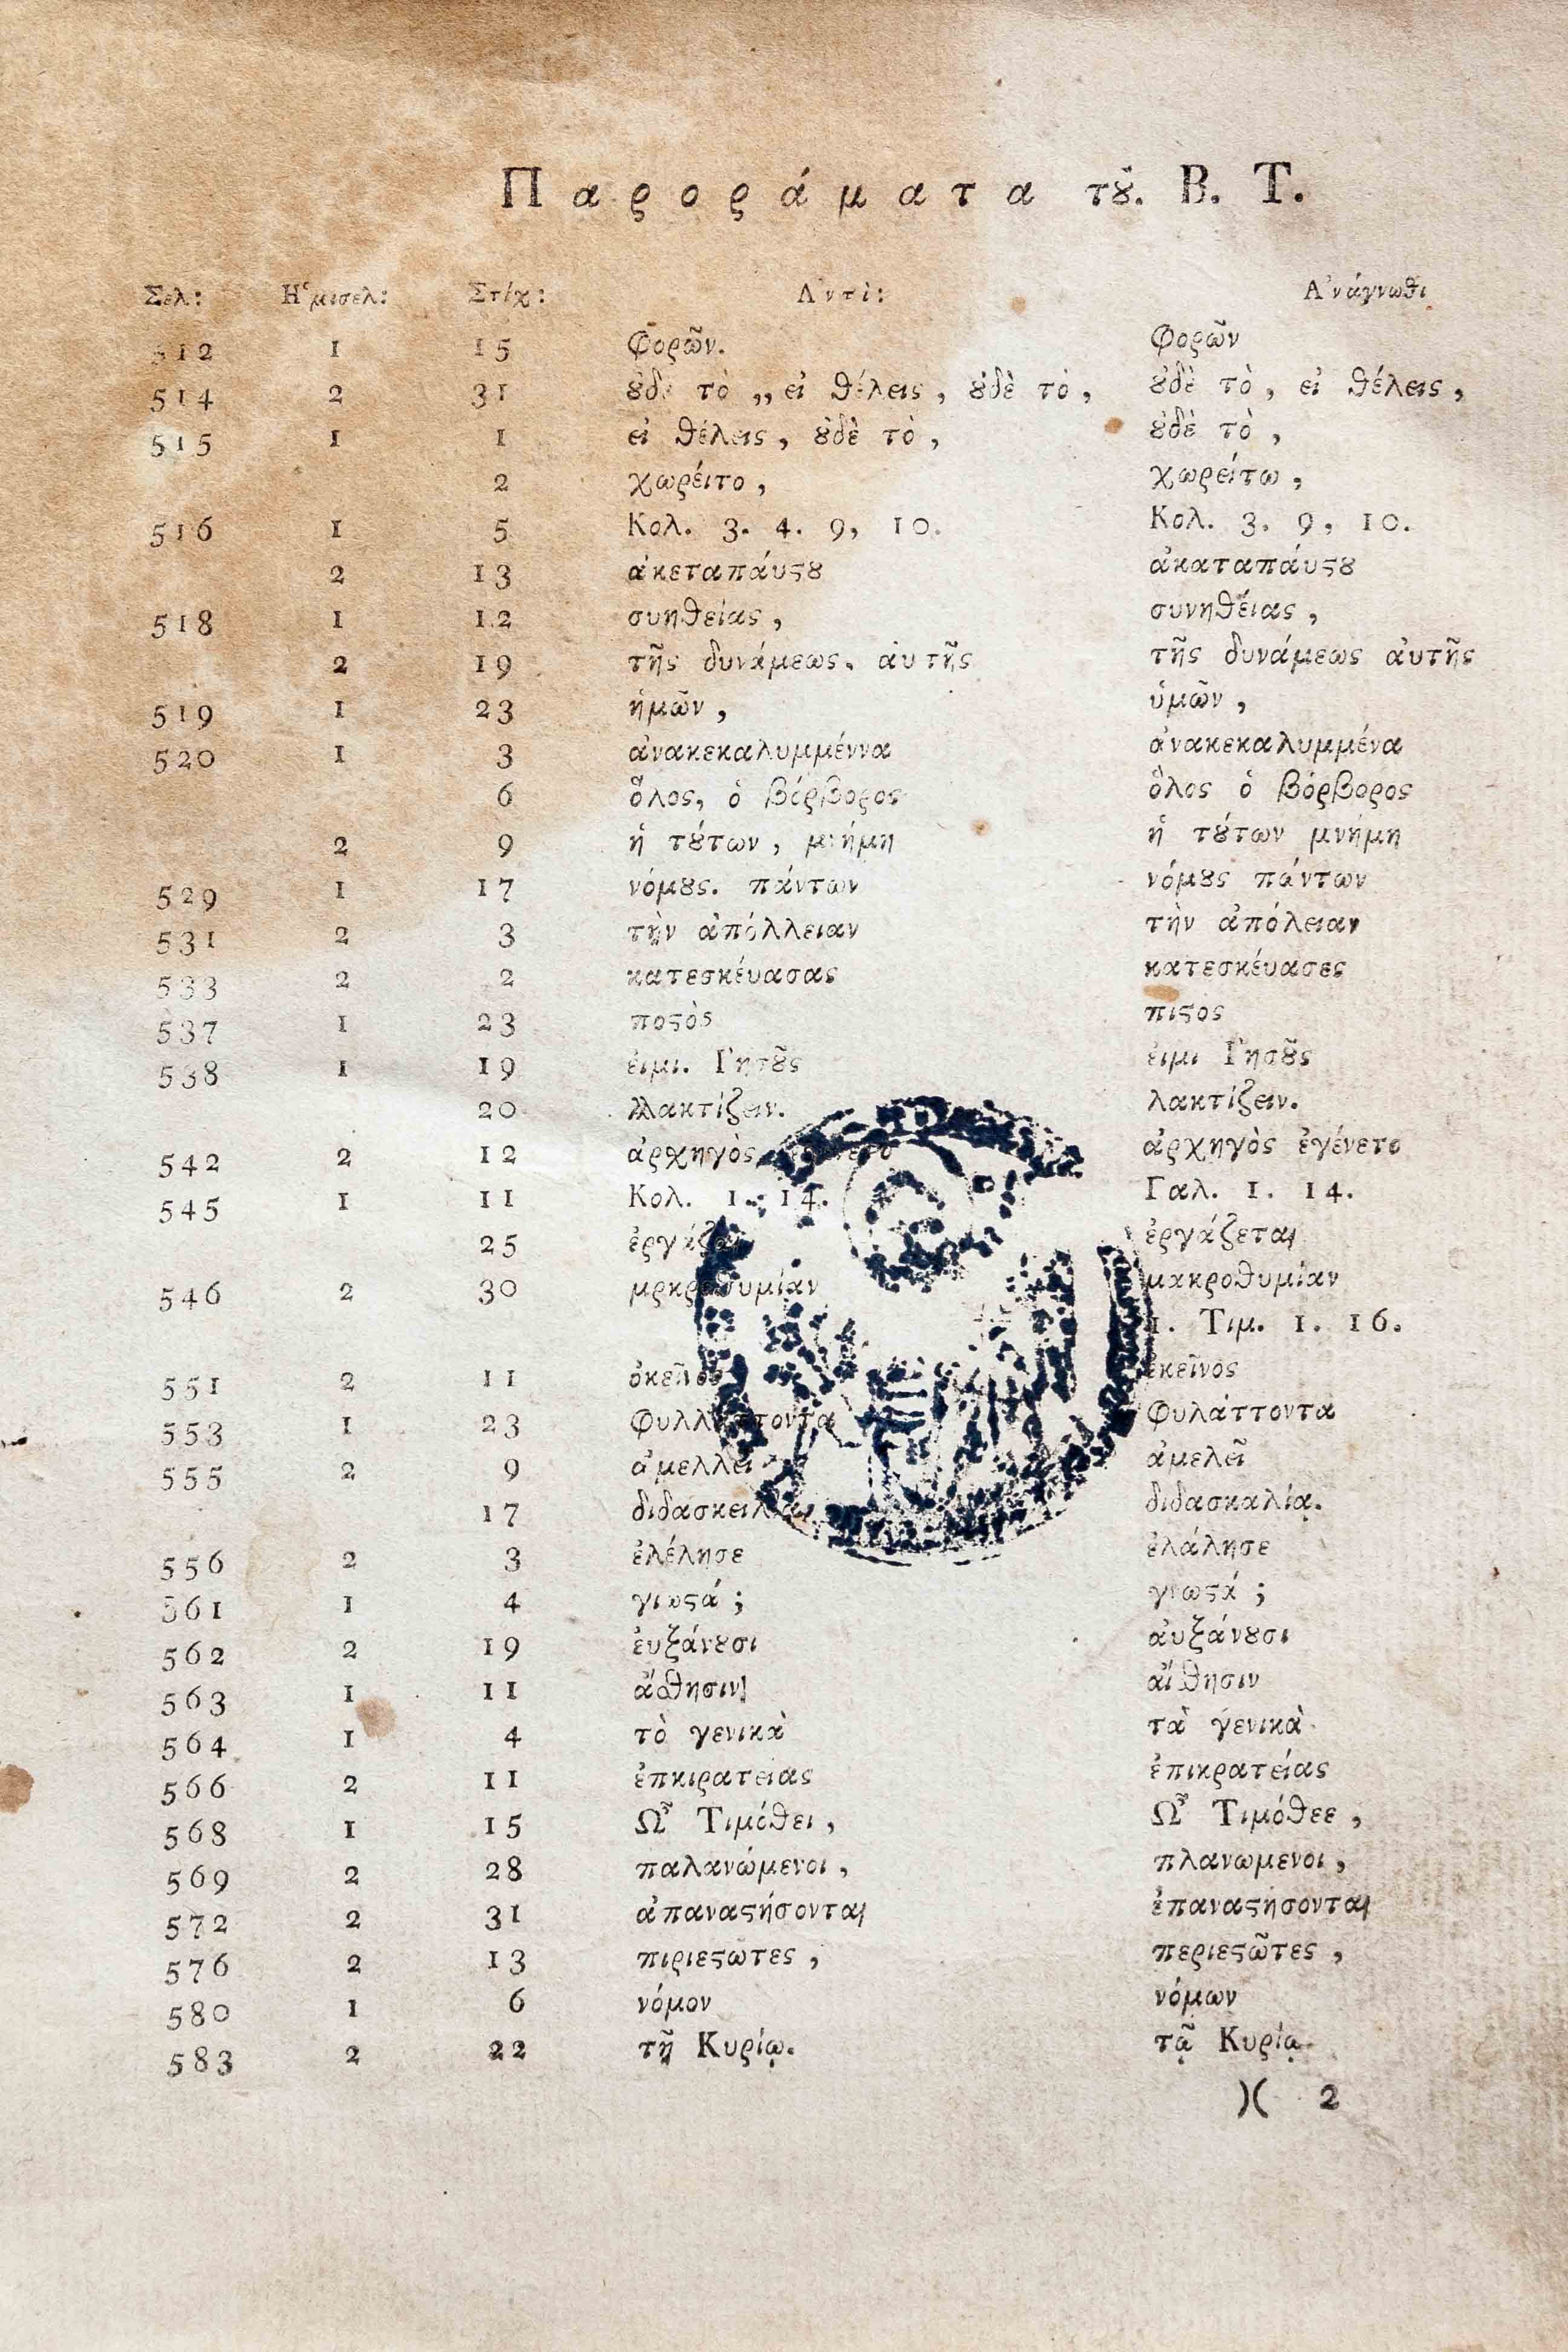 Παροράματα τȣ͂. Β. Τ.
Σελ: Ἡμισελ: Στίχ: Ἀντὶ: Ἀνάγνωθι
512 1 15 φορῶν. φορῶν
514 2 31 ȣ̓δὲ τὸ ,, εἰ θέλεις, ȣ̓δὲ τὸ, ȣ̓δὲ τὸ, εἰ θέλεις,
515 1 1 εἰ θέλεις, ȣ̓δὲ τὸ, ȣ̓δὲ τὸ,
2 χωρέιτο, χωρείτω,
516 1 5 Κολ. 3. 4. 9, 10. Κολ. 3. 9, 10.
2 13 ἀκεταπάυςȣ ἀκαταπάυςȣ
518 1 12 συηθείας, συνηθέιας,
2 19 τῆς δυνάμεως. ἀυτῆς τῆς δυνάμεως ἀυτῆς
519 1 23 ἡμῶν, ὑμῶν,
520 1 3 ἀνακεκαλυμμέννα ἀνακεκαλυμμένα
6 ὅλος, ὁ βόρβορος ὅλος ὁ βόρβορος
2 9 ἡ τȣ́των, μνήμη ἡ τȣ́των μνήμη
529 1 17 νόμȣς. πάντων νόμȣς πάντων
531 2 3 τὴν ἀπόλλειαν τὴν ἀπόλειαν
533 2 2 κατεσκέυασας κατεσκέυασες
537 1 23 ποςὸς πιςος
538 1 19 ἐιμι. Ἰησȣ͂ς ἐιμι Ἰησȣ͂ς
20 λλακτίζειν. λακτίζειν.
542 2 12 ἀρχηγὸς, ἀρχηγὸς ἐγένετο
545 1 11 Κολ. 1. 14. Γαλ. 1. 14.
25 ἐργάζεται
546 2 30 μρκροθυμίαν μακροθυμίαν
1. Τιμ. 1. 16.
551 2 11 ὀκεῖνος ἐκεῖνος
553 1 23 φυλλάττοντα φυλάττοντα
555 2 9 ἀμελλεῖ ἀμελεῖ
17 διδασκειλίᾳ διδασκαλίᾳ.
556 2 3 ἐλέλησε ἐλάλησε
561 1 4 γιωςά; γνωςά;
562 2 19 ἐυξάνȣσι ἀυξάνȣσι
563 1 11
564 1 4 τὸ γενικὰ τὰ γενικὰ
566 2 11 ἐπκιρατείας ἐπικρατείας
568 1 15 Ὦ Τιμόθει, Ὦ Τιμόθεε,
569 2 28 παλανώμενοι, πλανωμενοι,
572 2 31 ἀπαναςήσονται ἐπαναςήσονται
576 2 13 πιριεςωτες, περιεςῶτες,
580 1 6 νόμον νόμων
583 2 22 τῇ Κυρίῳ. τῷ Κυρίῳ
)( 2